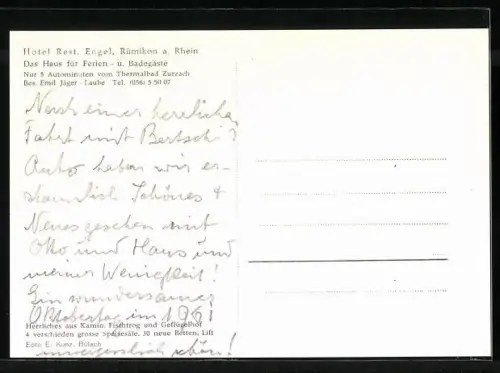 Hotel Rest. Engel, Rümikon a. Rhein
Das Haus für Ferien- u. Badegäste
Nur 8 Autominuten vom Thermalbad Zurzach
Bes. Emil Jäger-Laube Tel. (056) 5 50 07
Nach einer herrlichen
Fahrt mit Bertschi's
Auto haben wir er-
staunlich Schönes +
Neues gesehen mit
Otto und Hans und
meiner Wenigkeit!
Ein wundersamer
Oktobertag im 1961
Herrliches aus Kamin, Fischtrog und Geflügelhof
4 verschieden grosse Speisesäle, 30 neue Betten, Lift
Foto E. Kunz, Bülach
schön!